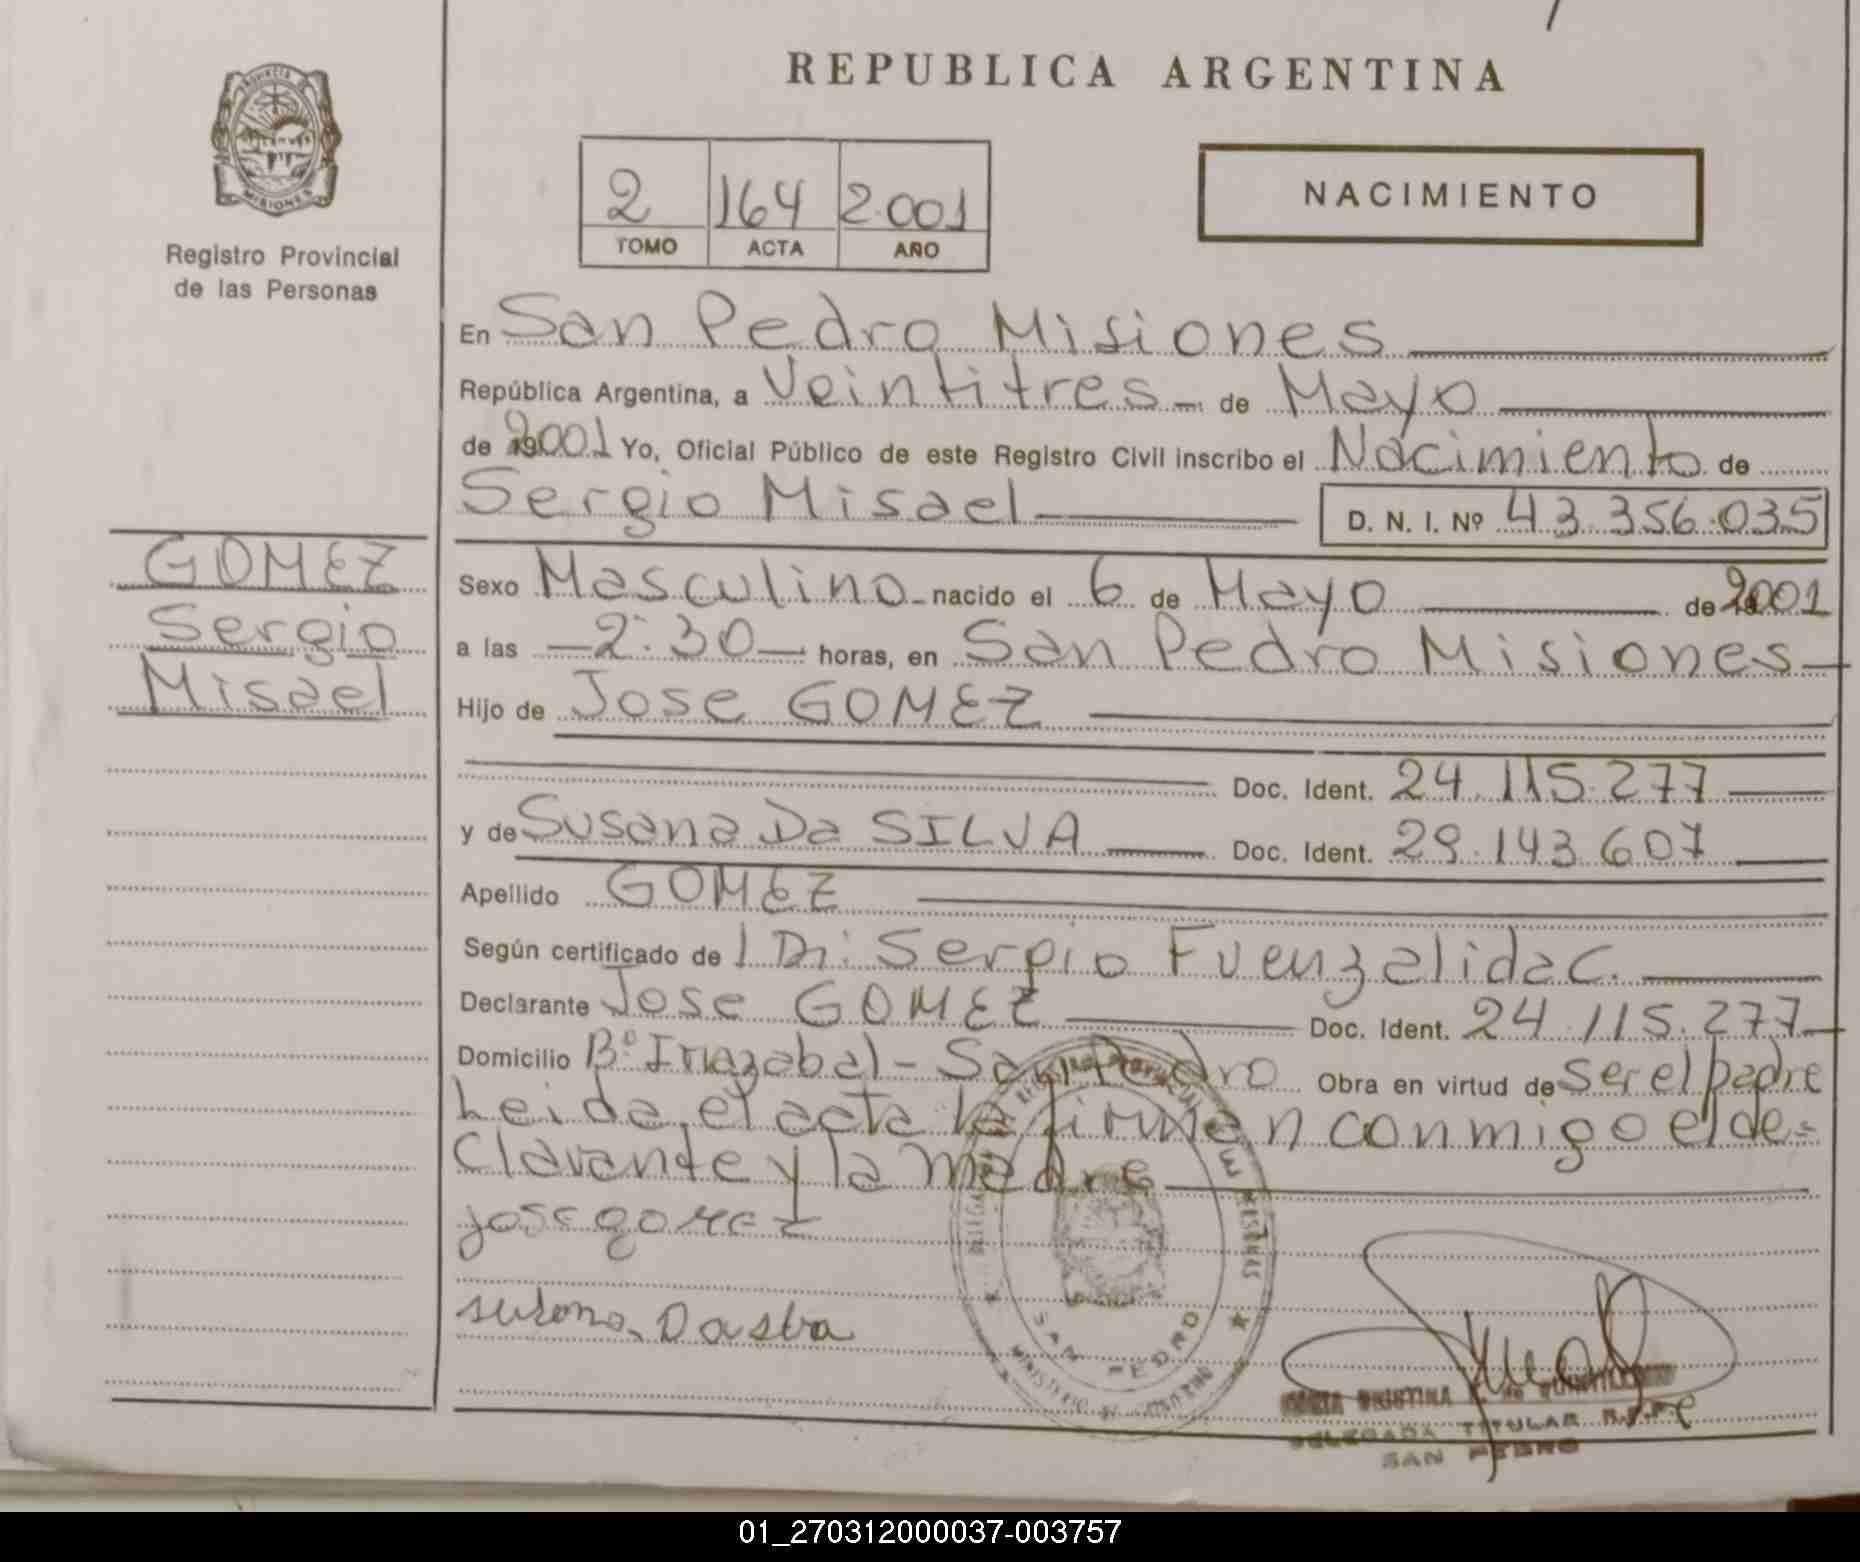 REPUBLICA ARGENTINA
PROVINCIA DE MISIONES
Registro Provincial
de las Personas
2 164 2.001
TOMO ACTA AÑO
NACIMIENTO
En San Pedro Misiones
República Argentina, a Veintitres de Mayo
de 2001 Yo, Oficial Público de este Registro Civil inscribo el Nacimiento de
Sergio Misael D. N. I. Nº 43.356.035
GOMEZ
Sergio
Misael
Sexo Masculino nacido el 6 de Mayo de 2001
a las 2:30 horas, en San Pedro Misiones
Hijo de Jose GOMEZ
Doc. Ident. 24.115.277
y de Susana Da SILVA Doc. Ident. 29.143.607
Apellido GOMEZ
Según certificado de Dr: Sergio Fuenzalida C.
Declarante Jose GOMEZ Doc. Ident. 24.115.277
Domicilio Bº Irrazabal - San Pedro Obra en virtud de ser el padre
Leida el acta la firman conmigo el de-
clarante y la madre
jose gomez
susana Da
SAN PEDRO
DELEGADA TITULAR R.P.P.
SAN PEDRO
01_270312000037-003757